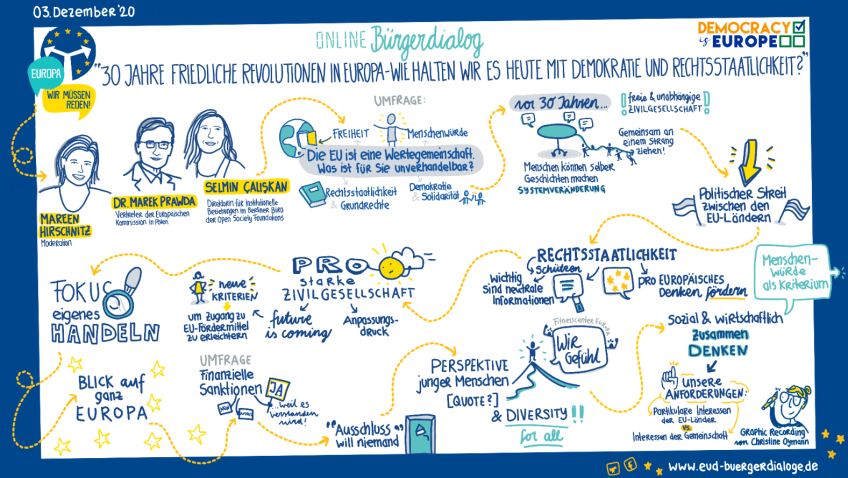 03. Dezember '20
EUROPA
WIR MÜSSEN
REDEN!
ONLINE Bürgerdialog
DEMOCRACY
is EUROPE
"30 JAHRE FRIEDLICHE REVOLUTIONEN IN EUROPA-WIE HALTEN WIR ES HEUTE MIT DEMOKRATIE UND RECHTSSTAATLICHKEIT?"
MAREEN
HIRSCHNITZ
Moderation
DR. MAREK PRAWDA
Vertreter der Europäischen
Kommission in Polen
SELMIN ÇALIŞKAN
Direktorin für Institutionelle
Beziehungen im Berliner Büro
der Open Society Foundations
UMFRAGE:
FREIHEIT
Menschenwürde
Die EU ist eine Wertegemeinschaft.
Was ist für Sie unverhandelbar?
Rechtsstaatlichkeit
& Grundrechte
Demokratie
& Solidarität
vor 30 Jahren...
! freie & unabhängige !
ZIVILGESELLSCHAFT
Gemeinsam an
einem Strang
ziehen!
Menschen können selber
Geschichten machen
SYSTEMVERÄNDERUNG
Politischer Streit
zwischen den
EU-Ländern
RECHTSSTAATLICHKEIT
schützen
Wichtig
sind neutrale
Informationen
PRO EUROPÄISCHES
Denken fördern
Menschen-
würde
als Kriterium
PRO
starke
ZIVILGESELLSCHAFT
future
is coming
Anpassungs-
druck
neue
KRITERIEN
um Zugang zu
EU-Fördermittel
zu erleichtern
FOKUS
eigenes
HANDELN
BLICK auf
ganz
EUROPA
UMFRAGE
Finanzielle
Sanktionen
JA
...weil es
verstanden
wird!
"Ausschluss"
will niemand
PERSPEKTIVE
junger Menschen
[QUOTE?]
& DIVERSITY!!
for all
Fitnesscenter Europa
Wir
Gefühl
Sozial & wirtschaftlich
zusammen
DENKEN
unsere
ANFORDERUNGEN:
Partikulare Interessen
der EU-Länder
vs.
Interessen der Gemeinschaft
Graphic Recording
von Christine Oymann
www.eud-buergerdialoge.de